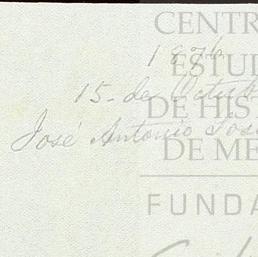 1876
15 - de Octub
José Antonio José
CENTR
ESTUD
DE HIS
DE ME
FUNDA